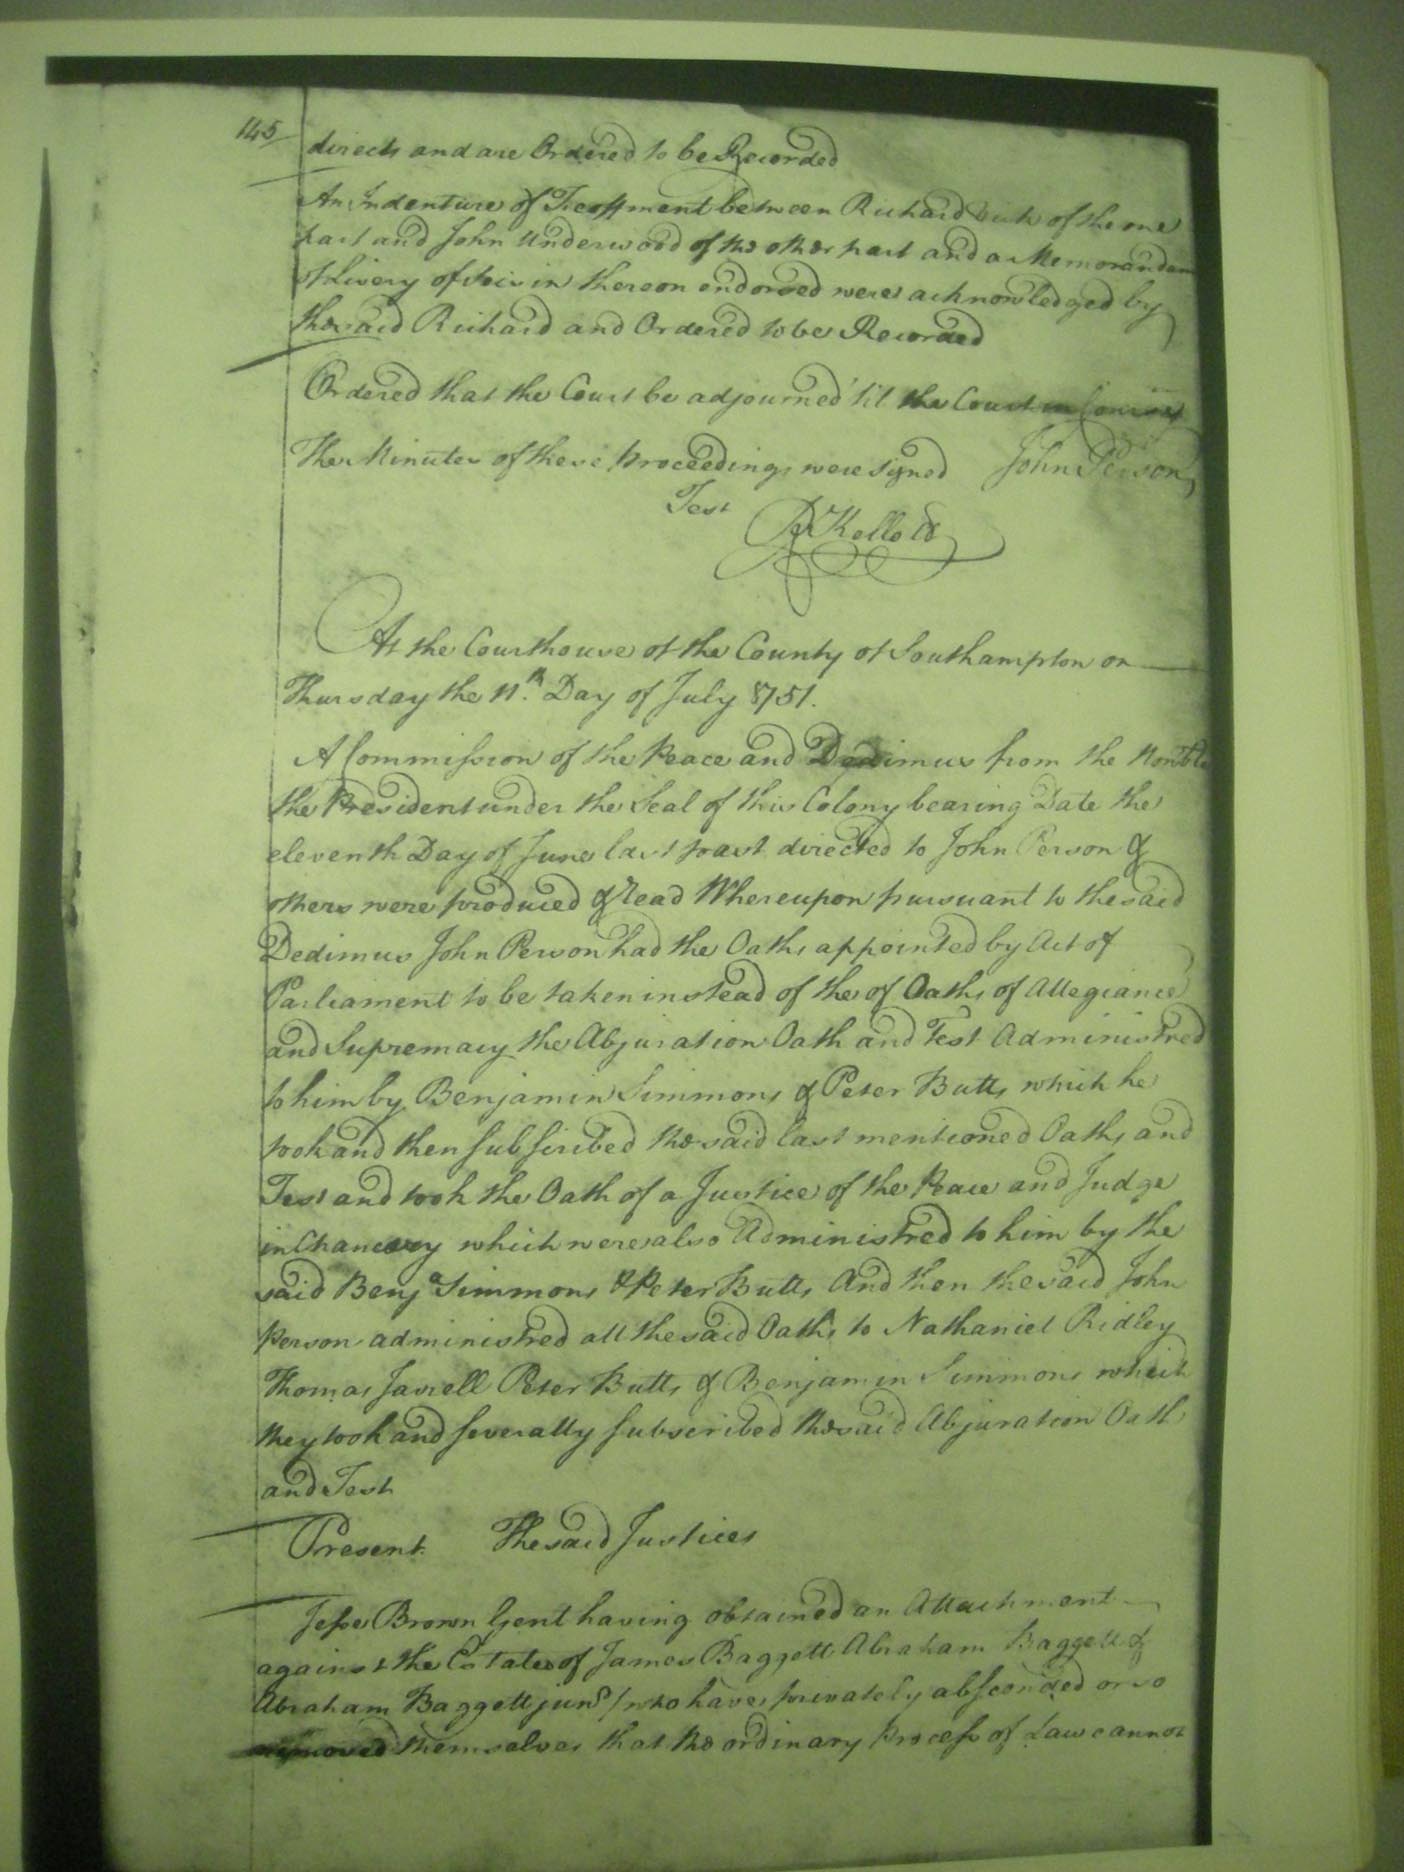 145
directs and are Ordered to be Recorded
An Indenture of Feoffment between Richard Vick of the one
part and John Underwood of the other part and a Memorandum
of Livery of Seisin thereon endorsed were acknowledged by
the said Richard and Ordered to be Recorded
Ordered that the Court be adjourned 'til the Court in Course
The Minutes of these proceedings were signed John Person
Test
R Kello C
At the Courthouse of the County of Southampton on
Thursday the 11th Day of July 1751.
A Commission of the Peace and Dedimus from the Honble
the President under the Seal of this Colony bearing Date the
eleventh Day of June last past directed to John Person &
others were produced & read Whereupon pursuant to the said
Dedimus John Person had the Oaths appointed by Act of
Parliament to be taken instead of the of Oaths of Allegiance
and Supremacy the Abjuration Oath and Test Administred
to him by Benjamin Simmons & Peter Butts which he
took and then subscribed the said last mentioned Oaths and
Test and took the Oath of a Justice of the Peace and Judge
in Chancery which were also Administred to him by the
said Benja Simmons & Peter Butts And then the said John
Person administred all the said Oaths to Nathaniel Ridley
Thomas Jarrell Peter Butts & Benjamin Simmons which
they took and severally subscribed the said Abjuration Oath
and Test
Present The said Justices
Jesse Brown Gent having obtained an Attachment
against the Estates of James Baggett Abraham Baggett &
Abraham Baggett junr /who have privately absconded or so
removed themselves that the ordinary Process of Law cannot